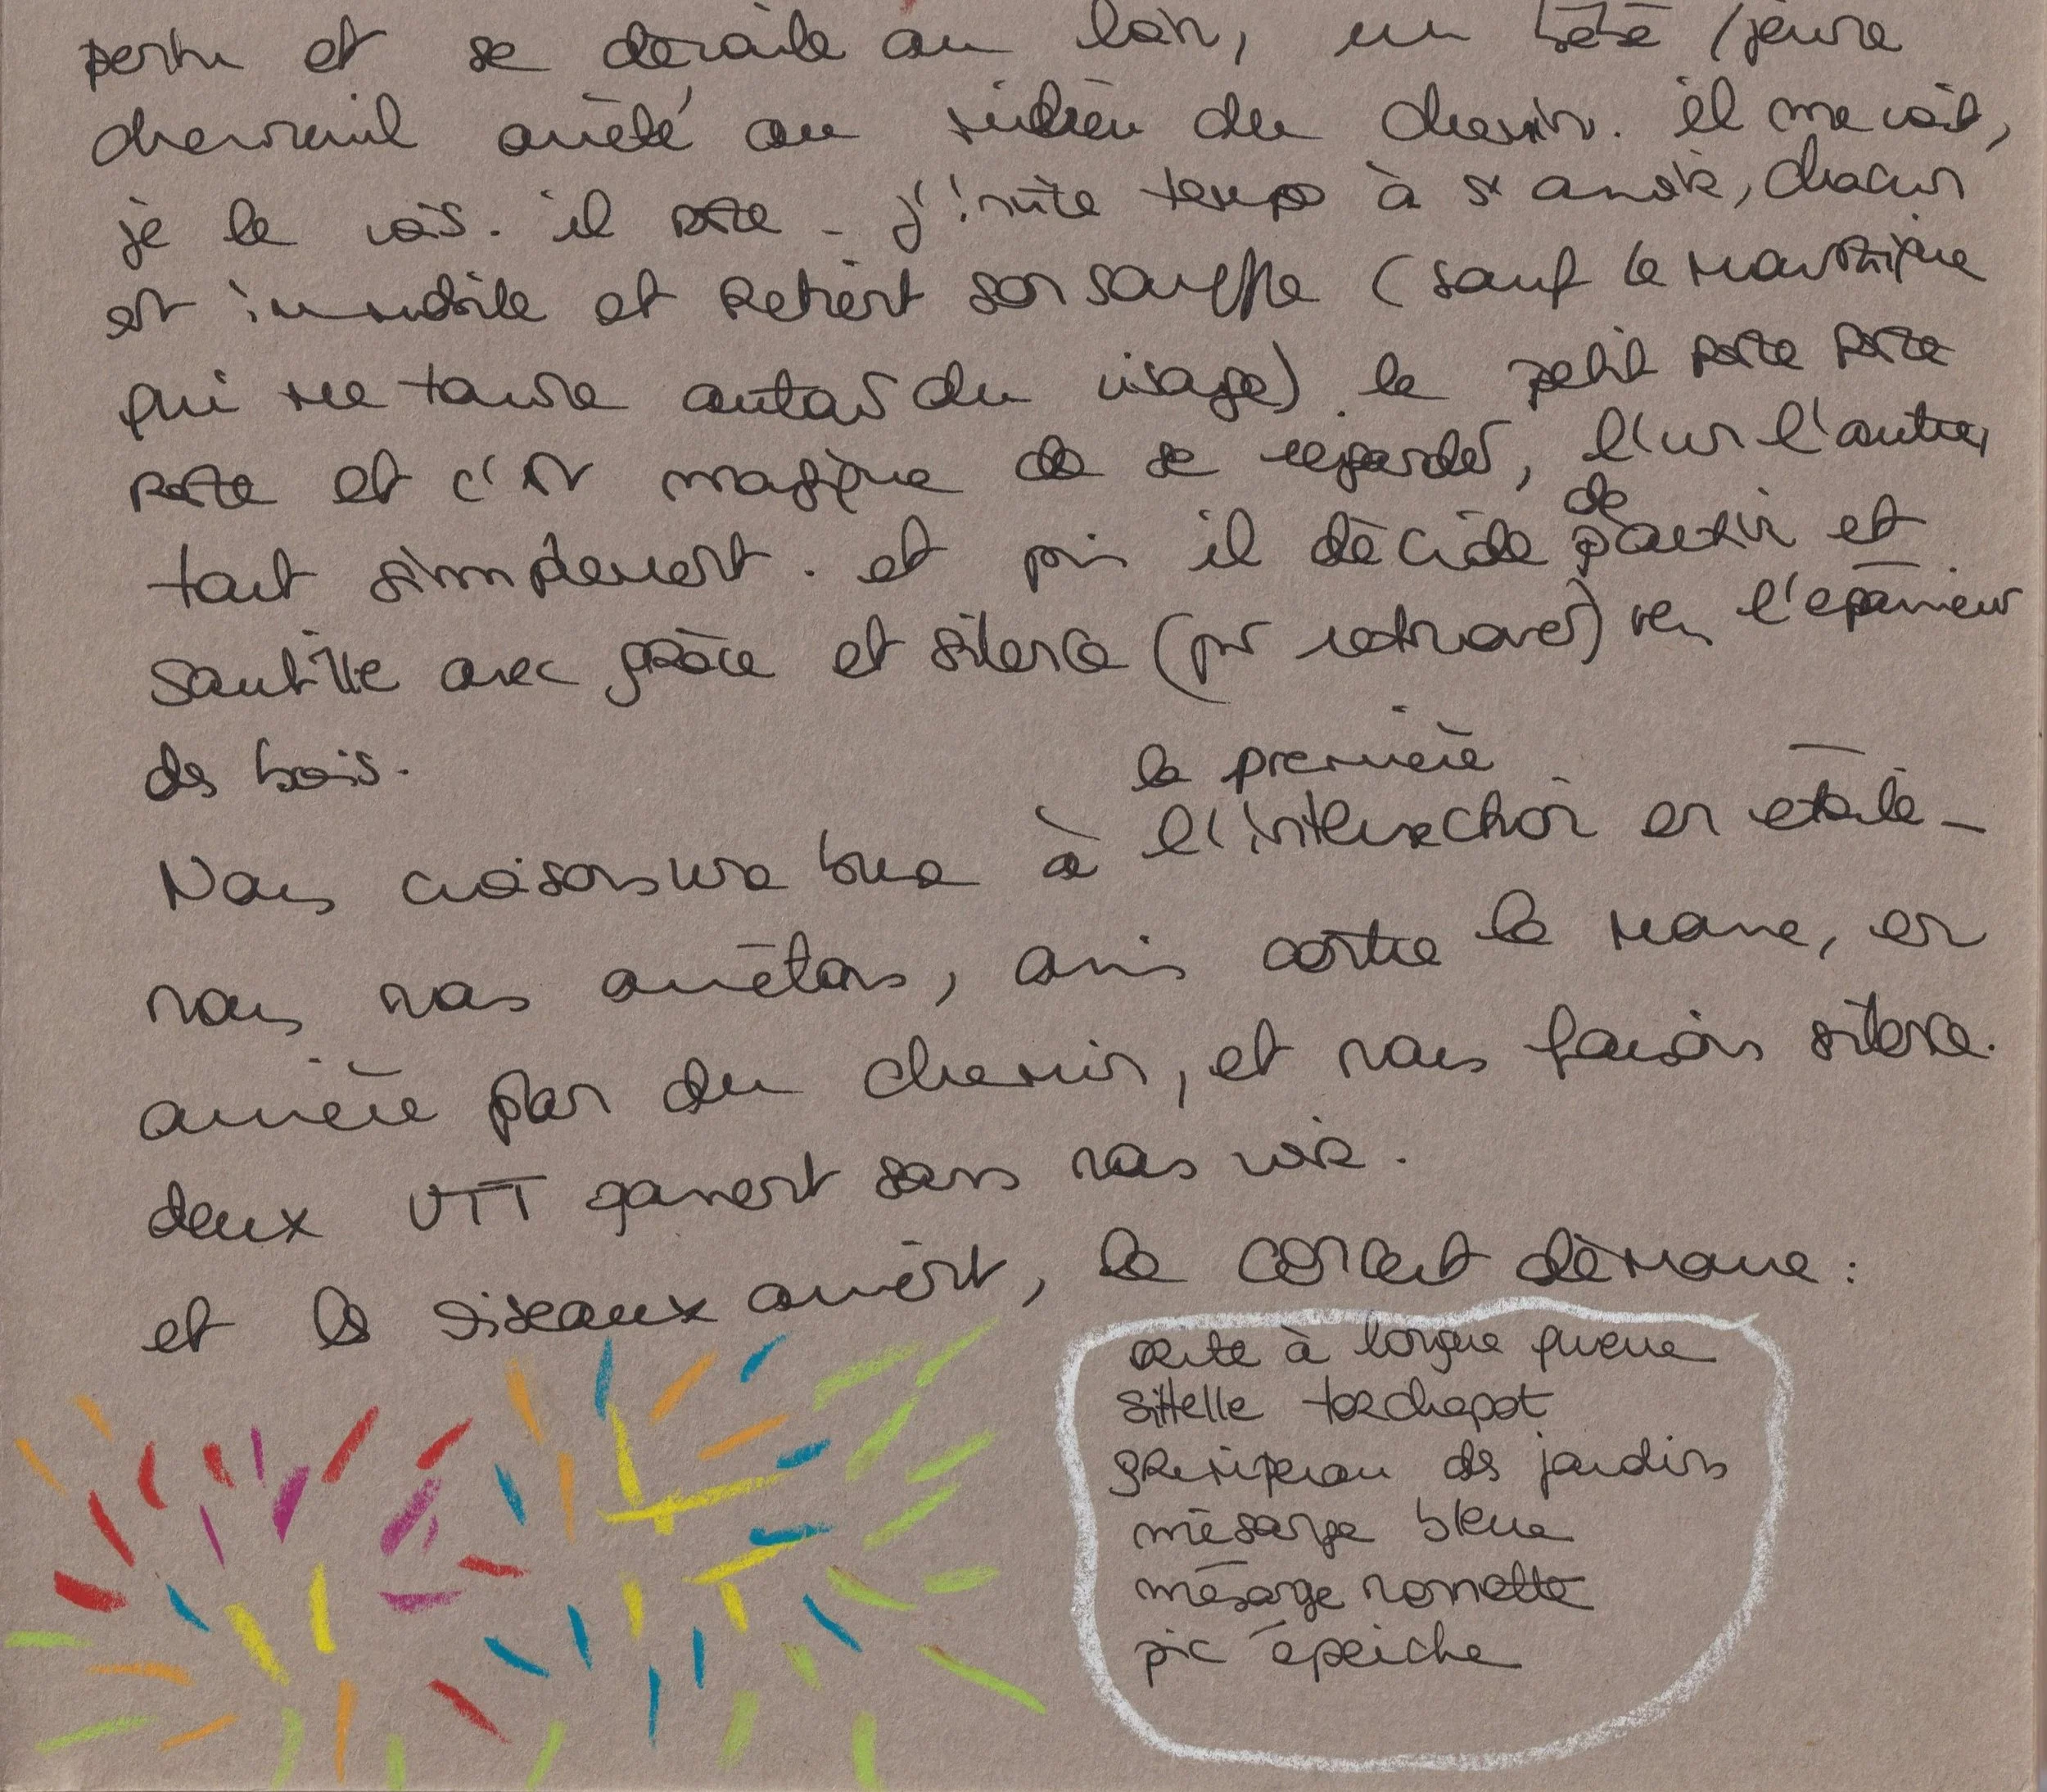 pente et se dévoile au loin, un bébé / jeune
chevreuil arrêté au milieu du chemin. il me voit,
je le vois. il reste - j'invite temps à s'arrêter, chacun
est immobile et retient son souffle (sauf le moustique
qui me tourne autour du visage). le petit reste reste
reste et c'est magique de se regarder, l'un l'autre,
tout simplement. et puis il décide de partir et
sautille avec grâce et silence (pr retrouver) vers l'épaisseur
des bois.
la première
Nous croisons une buse à l'intersection en étoile -
nous nous arrêtons, assis contre la mare, en
arrière plan du chemin, et nous faisons silence.
deux VTT passent sans nous voir.
et les oiseaux arrivent, le concert démarre :
orite à longue queue
sittelle torchepot
grimpereau des jardins
mésange bleue
mésange nonnette
pic épeiche